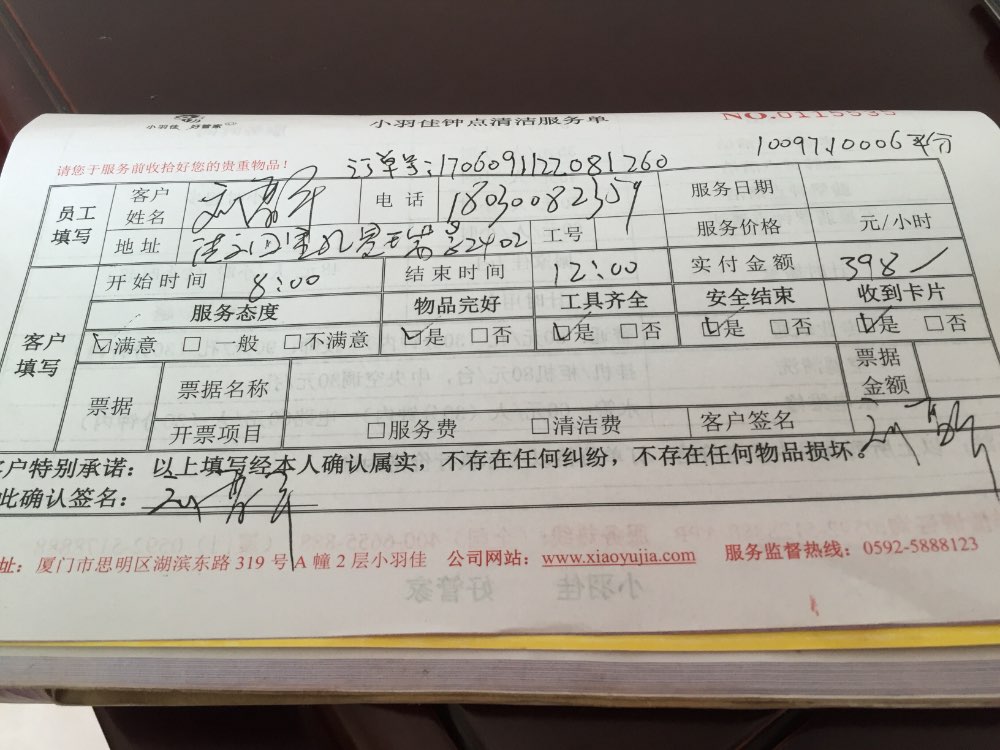 小羽佳 好管家
小羽佳钟点清洁服务单
NO.0115535
请您于服务前收拾好您的贵重物品!
订单号:1706091122081260
1009710006
员工填写
客户姓名
电话 18030082359
服务日期
地址 2402
工号
服务价格 元/小时
客户填写
开始时间 8:00
结束时间 12:00
实付金额 398
服务态度 物品完好 工具齐全 安全结束 收到卡片
☑满意 □一般 □不满意 ☑是 □否 ☑是 □否 ☑是 □否 ☑是 □否
票据
票据名称
票据金额
开票项目 □服务费 □清洁费 客户签名
客户特别承诺:以上填写经本人确认属实,不存在任何纠纷,不存在任何物品损坏。
此确认签名:
址:厦门市思明区湖滨东路 319 号 A 幢 2 层小羽佳 公司网站:www.xiaoyujia.com 服务监督热线:0592-5888123